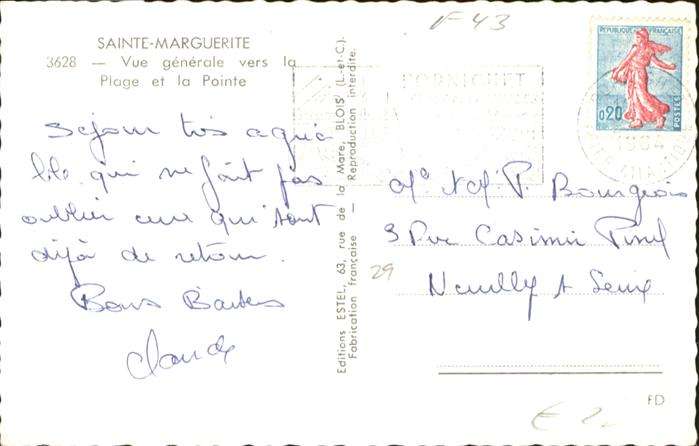 SAINTE-MARGUERITE
3628 — Vue générale vers la
Plage et la Pointe
Séjour très agréa
ble qui ne fait pas
oublier ceux qui sont
déjà de retour.
Bons Baisers
Claude
Editions ESTEL, 63, rue de la Mare, BLOIS (L.-et-C.)
Fabrication française — Reproduction interdite.
F-43
PORNICHET
REPUBLIQUE FRANÇAISE
0,20
POSTES
1964
Mr et Me P. Bourgeois
3 Rue Casimir Pinel
29
Neuilly s Seine
FD
€ 2